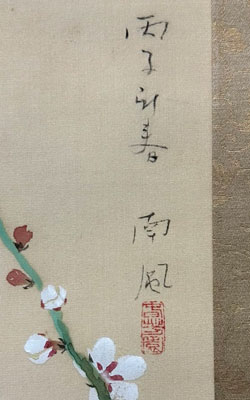 丙子新春
南風